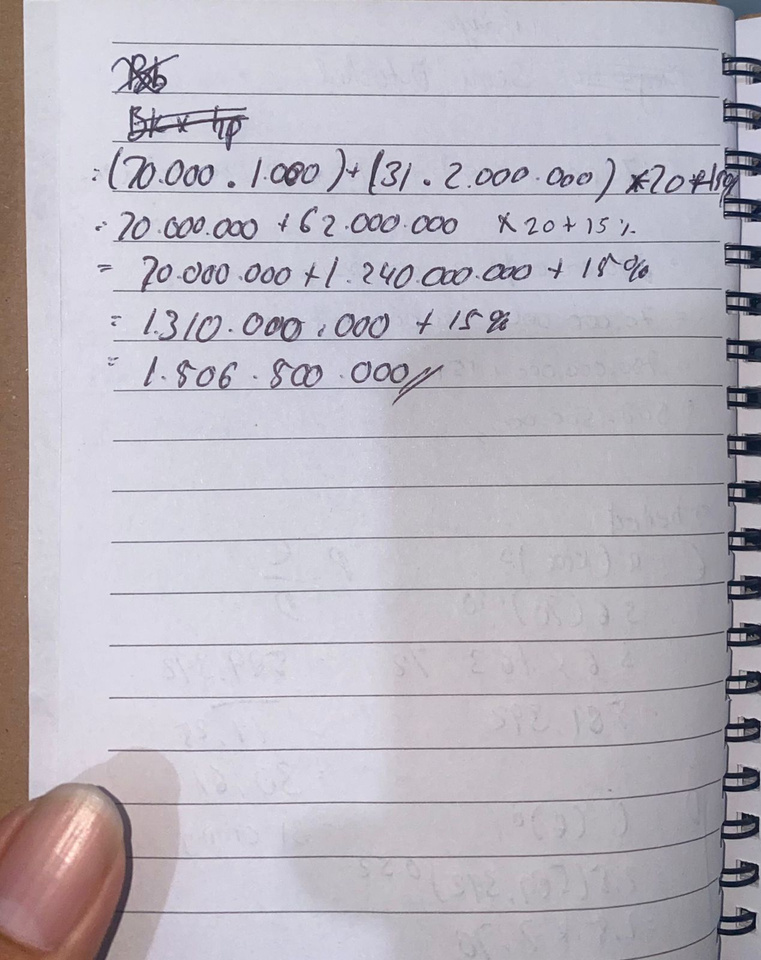 = (70.000 . 1.000) + (31 . 2.000.000) * 20 + 15%
= 70.000.000 + 62.000.000 x 20 + 15%
= 70.000.000 + 1.240.000.000 + 15%
= 1.310.000.000 + 15%
= 1.506.500.000 //